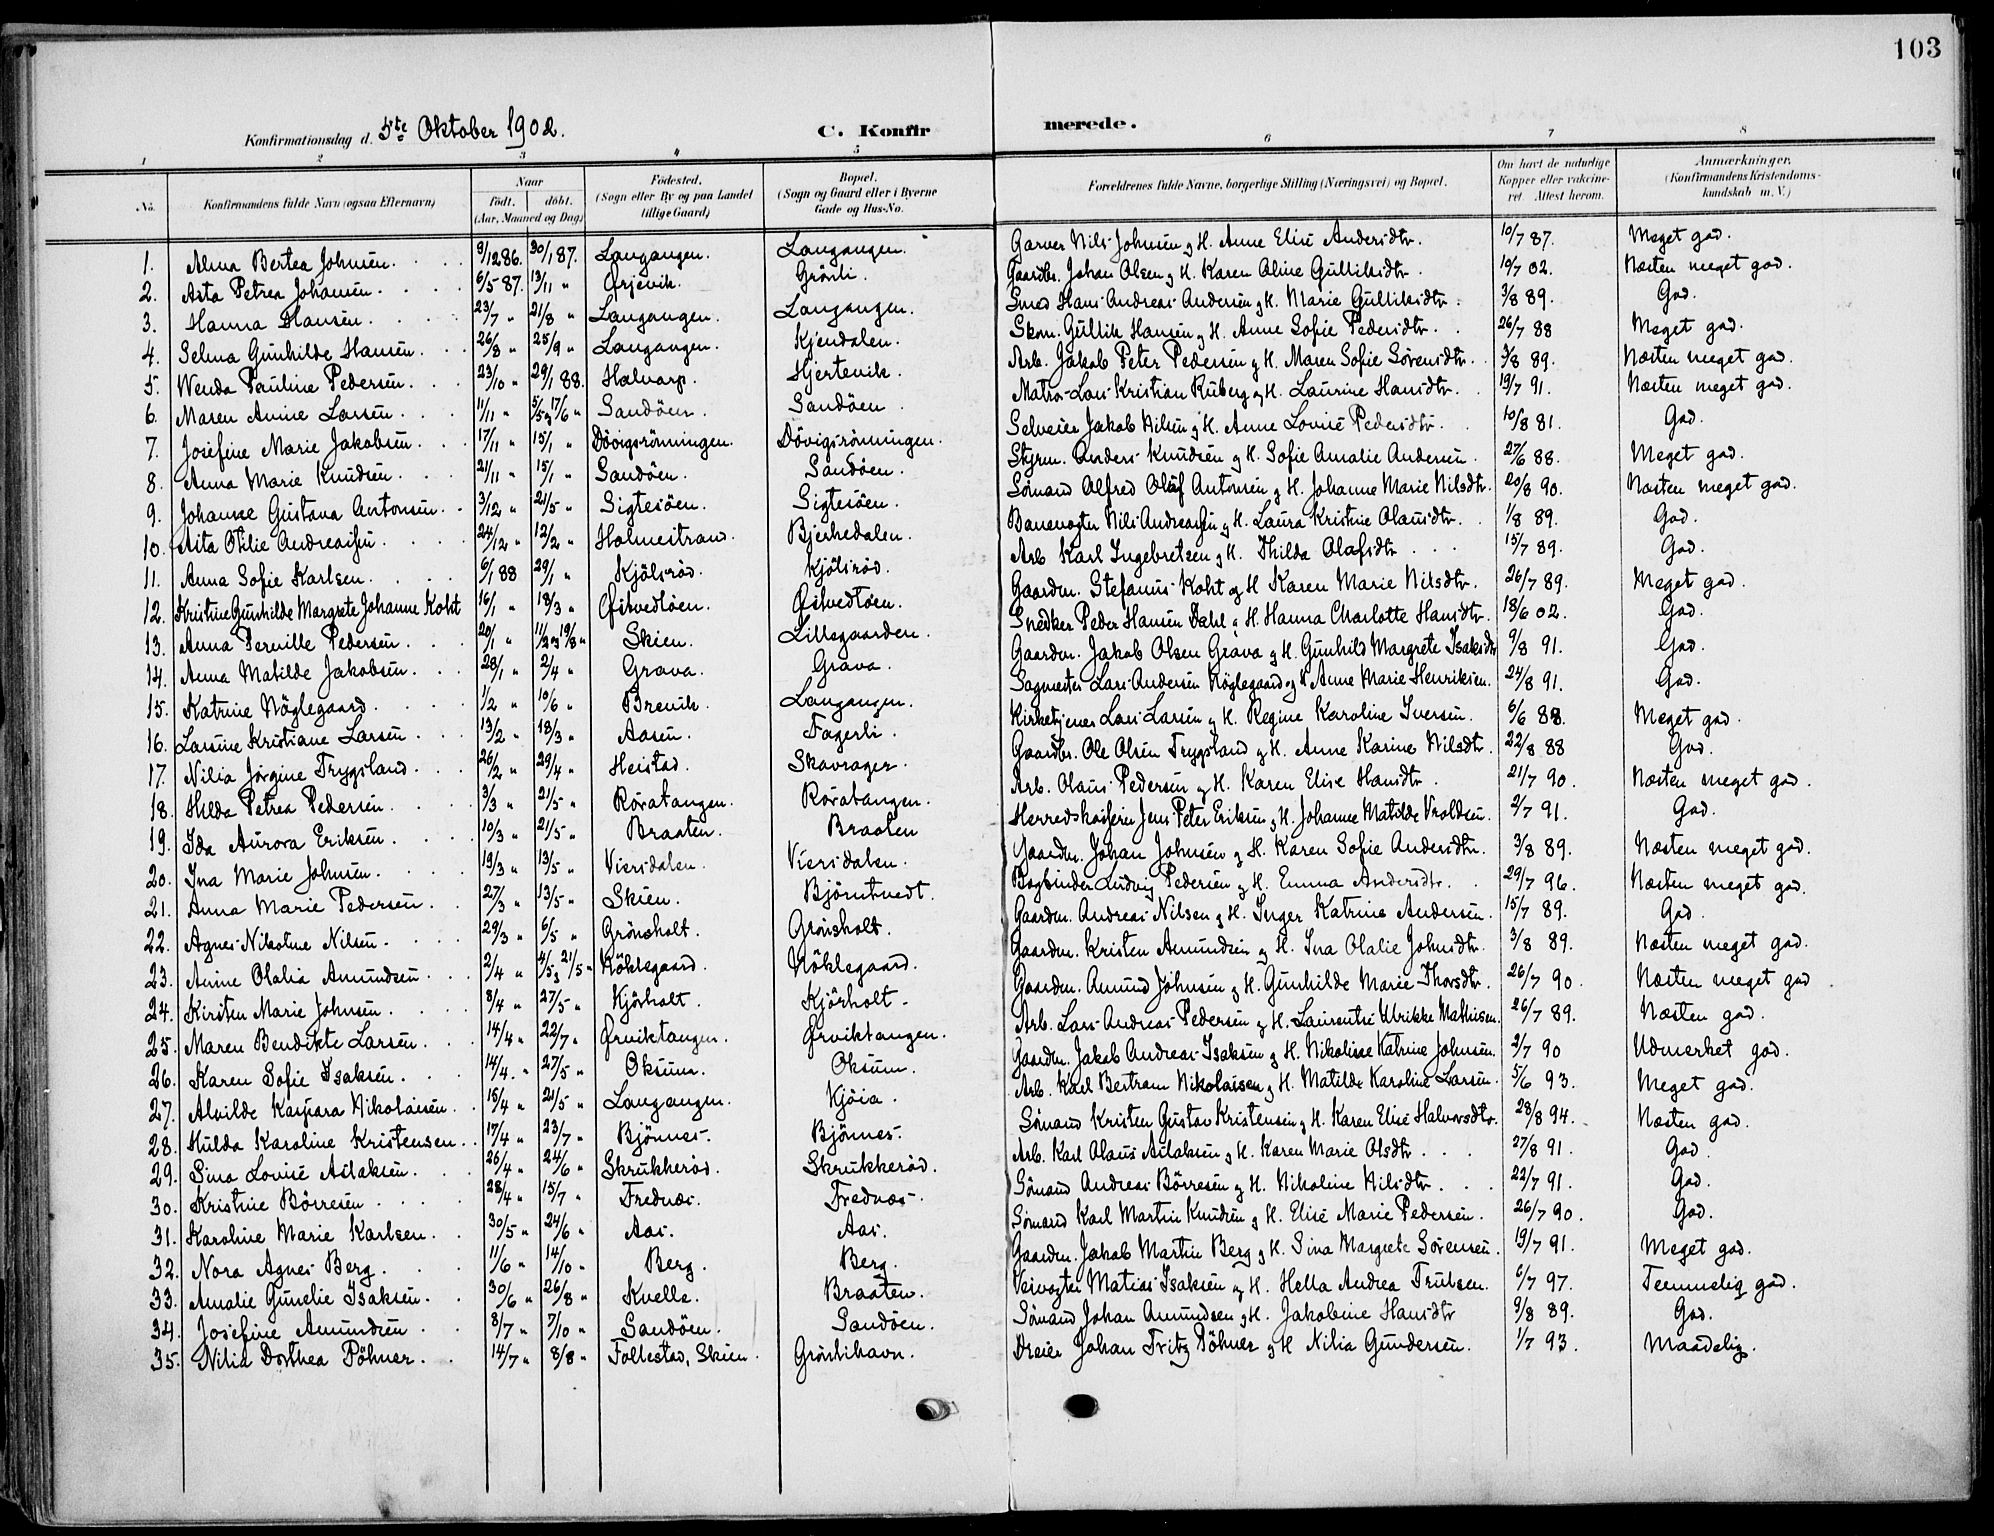 103
Konfirmationsdag d. 5te Oktober 1902. C. Konfirmerede.
1 2 3 4 5 6 7 8
No. Konfirmandens fulde Navn (ogsaa Efternavn) Naar født. døbt. (Aar, Maaned og Dag) Fødested. (Sogn eller By og paa Landet tillige Gaard) Bopæl. (Sogn og Gaard eller i Byerne Gade og Hus-No. Forældrenes fulde Navne, borgerlige Stilling (Næringsvei) og Bopæl. Om havt de naturlige Kopper eller vakcineret. Attest herom. Anmærkninger. (Konfirmandens Kristendomskundskab m. V.)
1. Alma Bertea Johnsen. 8/12 86. 30/1 87. Langangen. Langangen. Garver Nils Johnsen og H. Anne Elise Andersdtr. 10/7 87. Meget god.
2. Asta Petrea Johansen. 6/5 87. 13/11 " Ørjevik. Grönli. Gaardbr. Johan Olsen og H. Karen Oline Gulliksdtr. 10/7 02. Næsten meget god.
3. Hanna Hansen. 23/7 " 21/8 " Langangen. Langangen. Smed Hans Andreas Andersen og H. Marie Gulliksdtr. 3/8 89. God.
4. Selma Gunhilde Hansen. 26/8 " 25/9 " Langangen. Kjendalen. Skom. Gullik Hansen og H. Anne Sofie Pedersdtr. 26/7 88 Meget god.
5. Wenda Pauline Pedersen. 23/10 " 29/1 88. Halvarp. Hjertevik. Arb. Jakob Peter Pedersen og H. Maren Sofie Sørensdtr. 3/8 89. Næsten meget god.
6. Maren Anine Larsen. 11/11 " 5/5 og 17/6 " Sandöen. Sandöen. Matros Lars Kristian Ruberg og H. Laurine Hansdtr. 19/7 91. Næsten meget god.
7. Josefine Marie Jakobsen. 17/11 " 15/1 " Dövigsrönningen. Dövigsrönningen. Selveier Jakob Nilsen og H. Anne Lovise Pedersdtr. 10/8 81. God.
8. Anna Marie Knudsen. 21/11 " 15/1 " Sandöen. Sandöen. Styrm. Anders Knudsen og H. Sofie Amalie Andersen. 27/6 88. Meget god.
9. Johanne Gustava Antonsen. 3/12 " 21/5 " Sigtesöen. Sigtesöen. Sømand Alfred Oluf Antonsen og H. Johanne Marie Nilsdtr. 20/8 90. Næsten meget god.
10. Asta Otilie Andreassen. 24/12 " 12/2 " Holmestrand. Bjerkedalen. Banevogter Nils Andreassen og H. Laura Kristine Olausdtr. 1/8 89. God.
11. Anna Sofie Karlsen. 6/1 88 29/1 " Kjölsröd. Kjölsröd. Arb. Karl Ingebretsen og H. Thilda Olafsdtr. 15/7 89. God.
12. Kristine Gunhilde Margrete Johanne Koht 16/1 " 18/3 " Østvedtöen. Østvedtöen. Gaardm. Stefanus Koht og H. Karen Marie Nilsdtr. 26/7 89. Meget god.
13. Anna Pernille Pedersen. 20/1 " 11/2 og 19/8 " Skien. Lillegaarden. Snedker Peder Hansen Dahl og H. Hanna Charlotte Hansdtr. 18/6 02. God.
14. Anna Matilde Jakobsen. 28/1 " 2/4 " Grava. Grava. Gaardm. Jakob Olsen Grava og H. Gunhild Margrete Isaksdtr 9/8 91. God.
15. Katrine Nöglegaard. 1/2 " 10/6 " Brevik. Langangen. Sagmester Lars Andersen Nöglegaard og H. Anne Marie Henriksen. 24/8 91. God.
16. Larsine Kristiane Larsen. 13/2 " 18/3 " Aasen. Fagerli. Kirketjener Lars Larsen og H. Regine Karoline Iversen. 6/6 88. Meget god.
17. Nilia Jörgine Trygsland. 26/2 " 29/4 " Heistad. Skavrager. Gaardbr. Ole Olsen Trygsland og H. Anne Karine Nilsdtr. 22/8 88 God.
18. Hilda Petrea Pedersen. 3/3 " 21/5 " Röratangen. Röratangen. Arb. Olaus Pedersen og H. Karen Elise Hansdtr. 21/7 90. Næsten meget god.
19. Ida Aurora Eriksen. 10/3 " 21/5 " Braaten. Braaten Herredskasserer Jens Peter Eriksen og H. Johanne Matilde Vroldsen. 2/7 91. God.
20. Ina Marie Johnsen. 19/3 " 13/5 " Viersdalen. Viersdalen. Gaardm. Johan Johnsen og H. Karen Sofie Andersdtr. 3/8 89. Næsten meget god.
21. Anna Marie Pedersen. 27/3 " 13/5 " Skien. Björntvedt. Bogbinder Ludvig Pedersen og H. Emma Andersdtr. 29/7 96. Næsten meget god.
22. Agnes Nikoline Nilsen. 29/3 " 6/5 " Grönsholt. Grönsholt. Gaardm. Andreas Nilsen og H. Inger Katrine Andersen. 15/7 89. God.
23. Anine Olalia Amundsen. 2/4 " 4/5 og 21/5 " Nöklegaard. Nöklegaard. Gaardm. Kristen Amundsen og H. Ina Olalie Johnsdtr. 3/8 89. Næsten meget god.
24. Kirsten Marie Johnsen. 8/4 " 27/5 " Kjörholt. Kjörholt. Gaardm. Amund Johnsen og H. Gunhilde Marie Thorsdtr. 26/7 90. Næsten meget god
25. Maren Bendikte Larsen. 14/4 " 22/7 " Ørviktangen. Ørviktangen. Arb. Lars Andreas Pedersen og H. Laurentse Ulrikke Mathisen. 26/7 89. Næsten god.
26. Karen Sofie Isaksen. 14/4. " 27/5 " Oksum. Oksum. Gaardm. Jakob Andreas Isaksen og H. Nikolisse Katrine Johnsen. 2/7 90 Udmerket god.
27. Alvilde Kaspara Nikolaisen. 15/4 " 21/5 " Langangen. Kjöia. Arb. Karl Bertram Nikolaisen og H. Matilde Karoline Larsen. 5/6 93. Meget god.
28. Hulda Karoline Kristensen. 17/4 " 23/7 " Björnes. Björnes. Sømand Kristen Gustav Kristensen og H. Karen Elise Halvorsdtr. 28/8 94. Næsten god.
29. Sina Lovise Aslaksen. 26/4 " 24/6 " Skrukkeröd. Skrukkeröd. Arb. Karl Olaus Aslaksen og H. Karen Marie Olsdtr. 27/8 91. God.
30. Kristine Börresen. 28/4 " 15/7 " Frednæs. Frednæs. Sömand Andreas Börresen og H. Nikoline Nilsdtr. 22/7 91. God.
31. Karoline Marie Karlsen. 30/5 " 24/6 " Aas. Aas. Sømand Karl Martin Knudsen og H. Elise Marie Pedersen. 26/7 90. God.
32. Nora Agnes Berg. 11/6 " 14/10 " Berg. Berg. Gaardm. Jakob Martin Berg og H. Sina Margrete Sörensen. 19/7 91. Meget god.
33. Amalie Gunelie Isaksen. 30/6 " 26/8 " Kvelle. Braaten. Veivogter Matias Isaksen og H. Hella Andrea Trulsen. 6/7 97. Temmelig god.
34. Josefine Amundsen. 8/7 " 7/10 " Sandöen. Sandöen. Sömand Johan Amundsen og H. Jakobine Hansdtr 9/8 89. God.
35. Nilia Dorthea Pöhner. 14/7 " 8/8 " Follestad, Skien. Grönlihavn. Dreier Johan Fritz Pöhner og H Nilia Gundersen. 1/7 93. Maadelig.